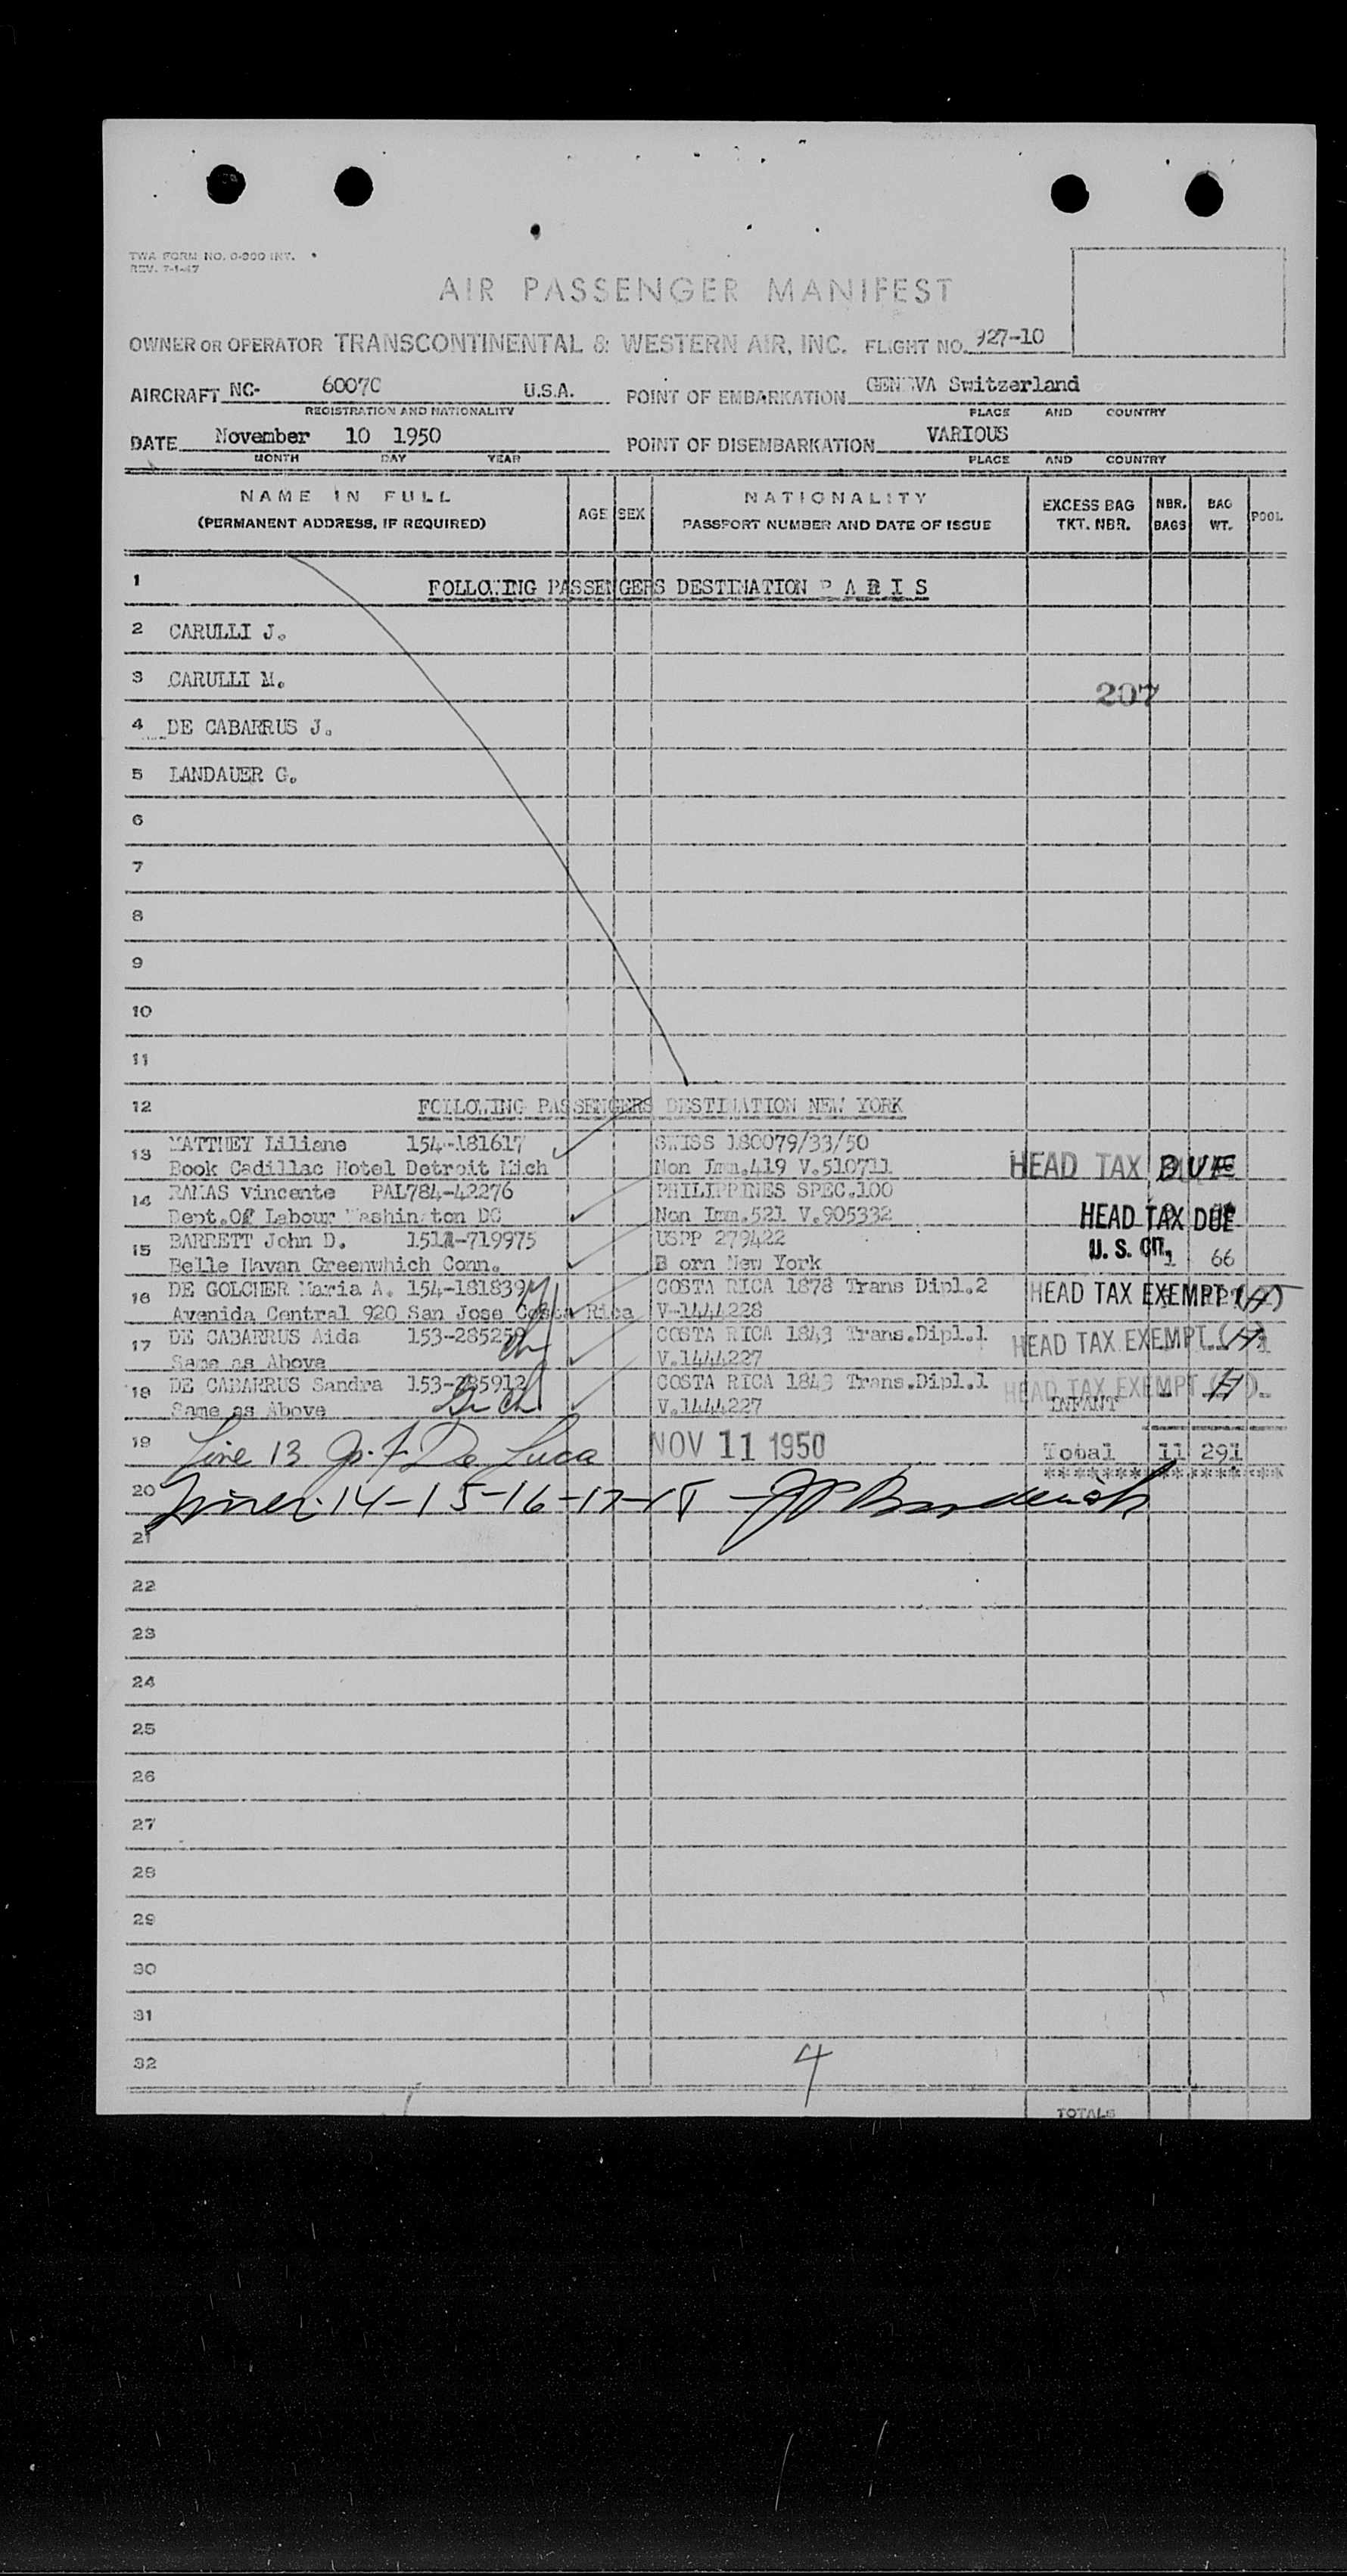 TWA FORM NO. 0-900 INT.
REV. 7-1-47
AIR PASSENGER MANIFEST
OWNER OR OPERATOR TRANSCONTINENTAL & WESTERN AIR, INC. FLIGHT NO. 927-10
AIRCRAFT NC- 60070 U.S.A. POINT OF EMBARKATION GENEVA Switzerland
REGISTRATION AND NATIONALITY PLACE AND COUNTRY
DATE November 10 1950 POINT OF DISEMBARKATION VARIOUS
MONTH DAY YEAR PLACE AND COUNTRY
NAME IN FULL
(PERMANENT ADDRESS, IF REQUIRED) AGE SEX NATIONALITY
PASSPORT NUMBER AND DATE OF ISSUE EXCESS BAG
TKT. NBR. NBR.
BAGS BAG
WT. POOL
1 FOLLOWING PASSENGERS DESTINATION P A R I S
2 CARULLI J.
3 CARULLI M.
207
4 DE CABARRUS J.
5 LANDAUER G.
6
7
8
9
10
11
12 FOLLOWING PASSENGERS DESTINATION NEW YORK
13 MATTHEY Liliane 154-181617 SWISS 180079/33/50
Book Cadillac Hotel Detroit Mich Non Imm.419 V.510711 HEAD TAX DUE
14 RAMAS vincente PAL784-42276 PHILIPPINES SPEC.100
Dept.Of Labour Washington DC Non Imm.521 V.905332 HEAD TAX DUE
15 BARRETT John D. 151-719975 USPP 279422 U. S. CIT. 1 66
Belle Havan Greenwhich Conn. B orn New York
16 DE GOLCHER Maria A. 154-181839 COSTA RICA 1878 Trans Dipl.2 HEAD TAX EXEMPT (H)
Avenida Central 920 San Jose Costa Rica V-1444228
17 DE CABARRUS Aida 153-285259 COSTA RICA 1843 Trans.Dipl.1 HEAD TAX EXEMPT (H)
Same as Above V.1444227
18 DE CABARRUS Sandra 153-285912 COSTA RICA 1843 Trans.Dipl.1 HEAD TAX EXEMPT (H)
Same as Above V.1444227 INFANT
19 Line 13 Jo. F. De Luca NOV 11 1950 Total 11 291
*******************
20 Lines 14-15-16-17-18
21
22
23
24
25
26
27
28
29
30
31
32
4
TOTALS